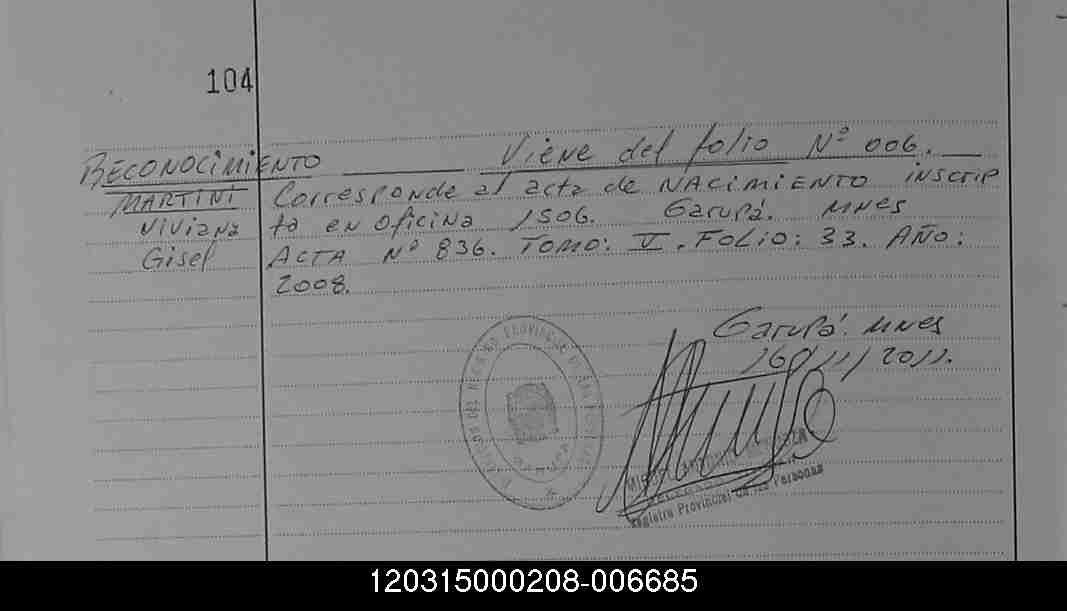 104
RECONOCIMIENTO
MARTINI
Viviana
Gisel
Viene del folio Nº 006.
Corresponde al acta de NACIMIENTO inscrip
ta en oficina 1506. Garupá. MNES
ACTA Nº 836. TOMO: V. FOLIO: 33. AÑO:
2008.
Garupá. MNES
16/11/2011.
Registro Provincial de las Personas
120315000208-006685